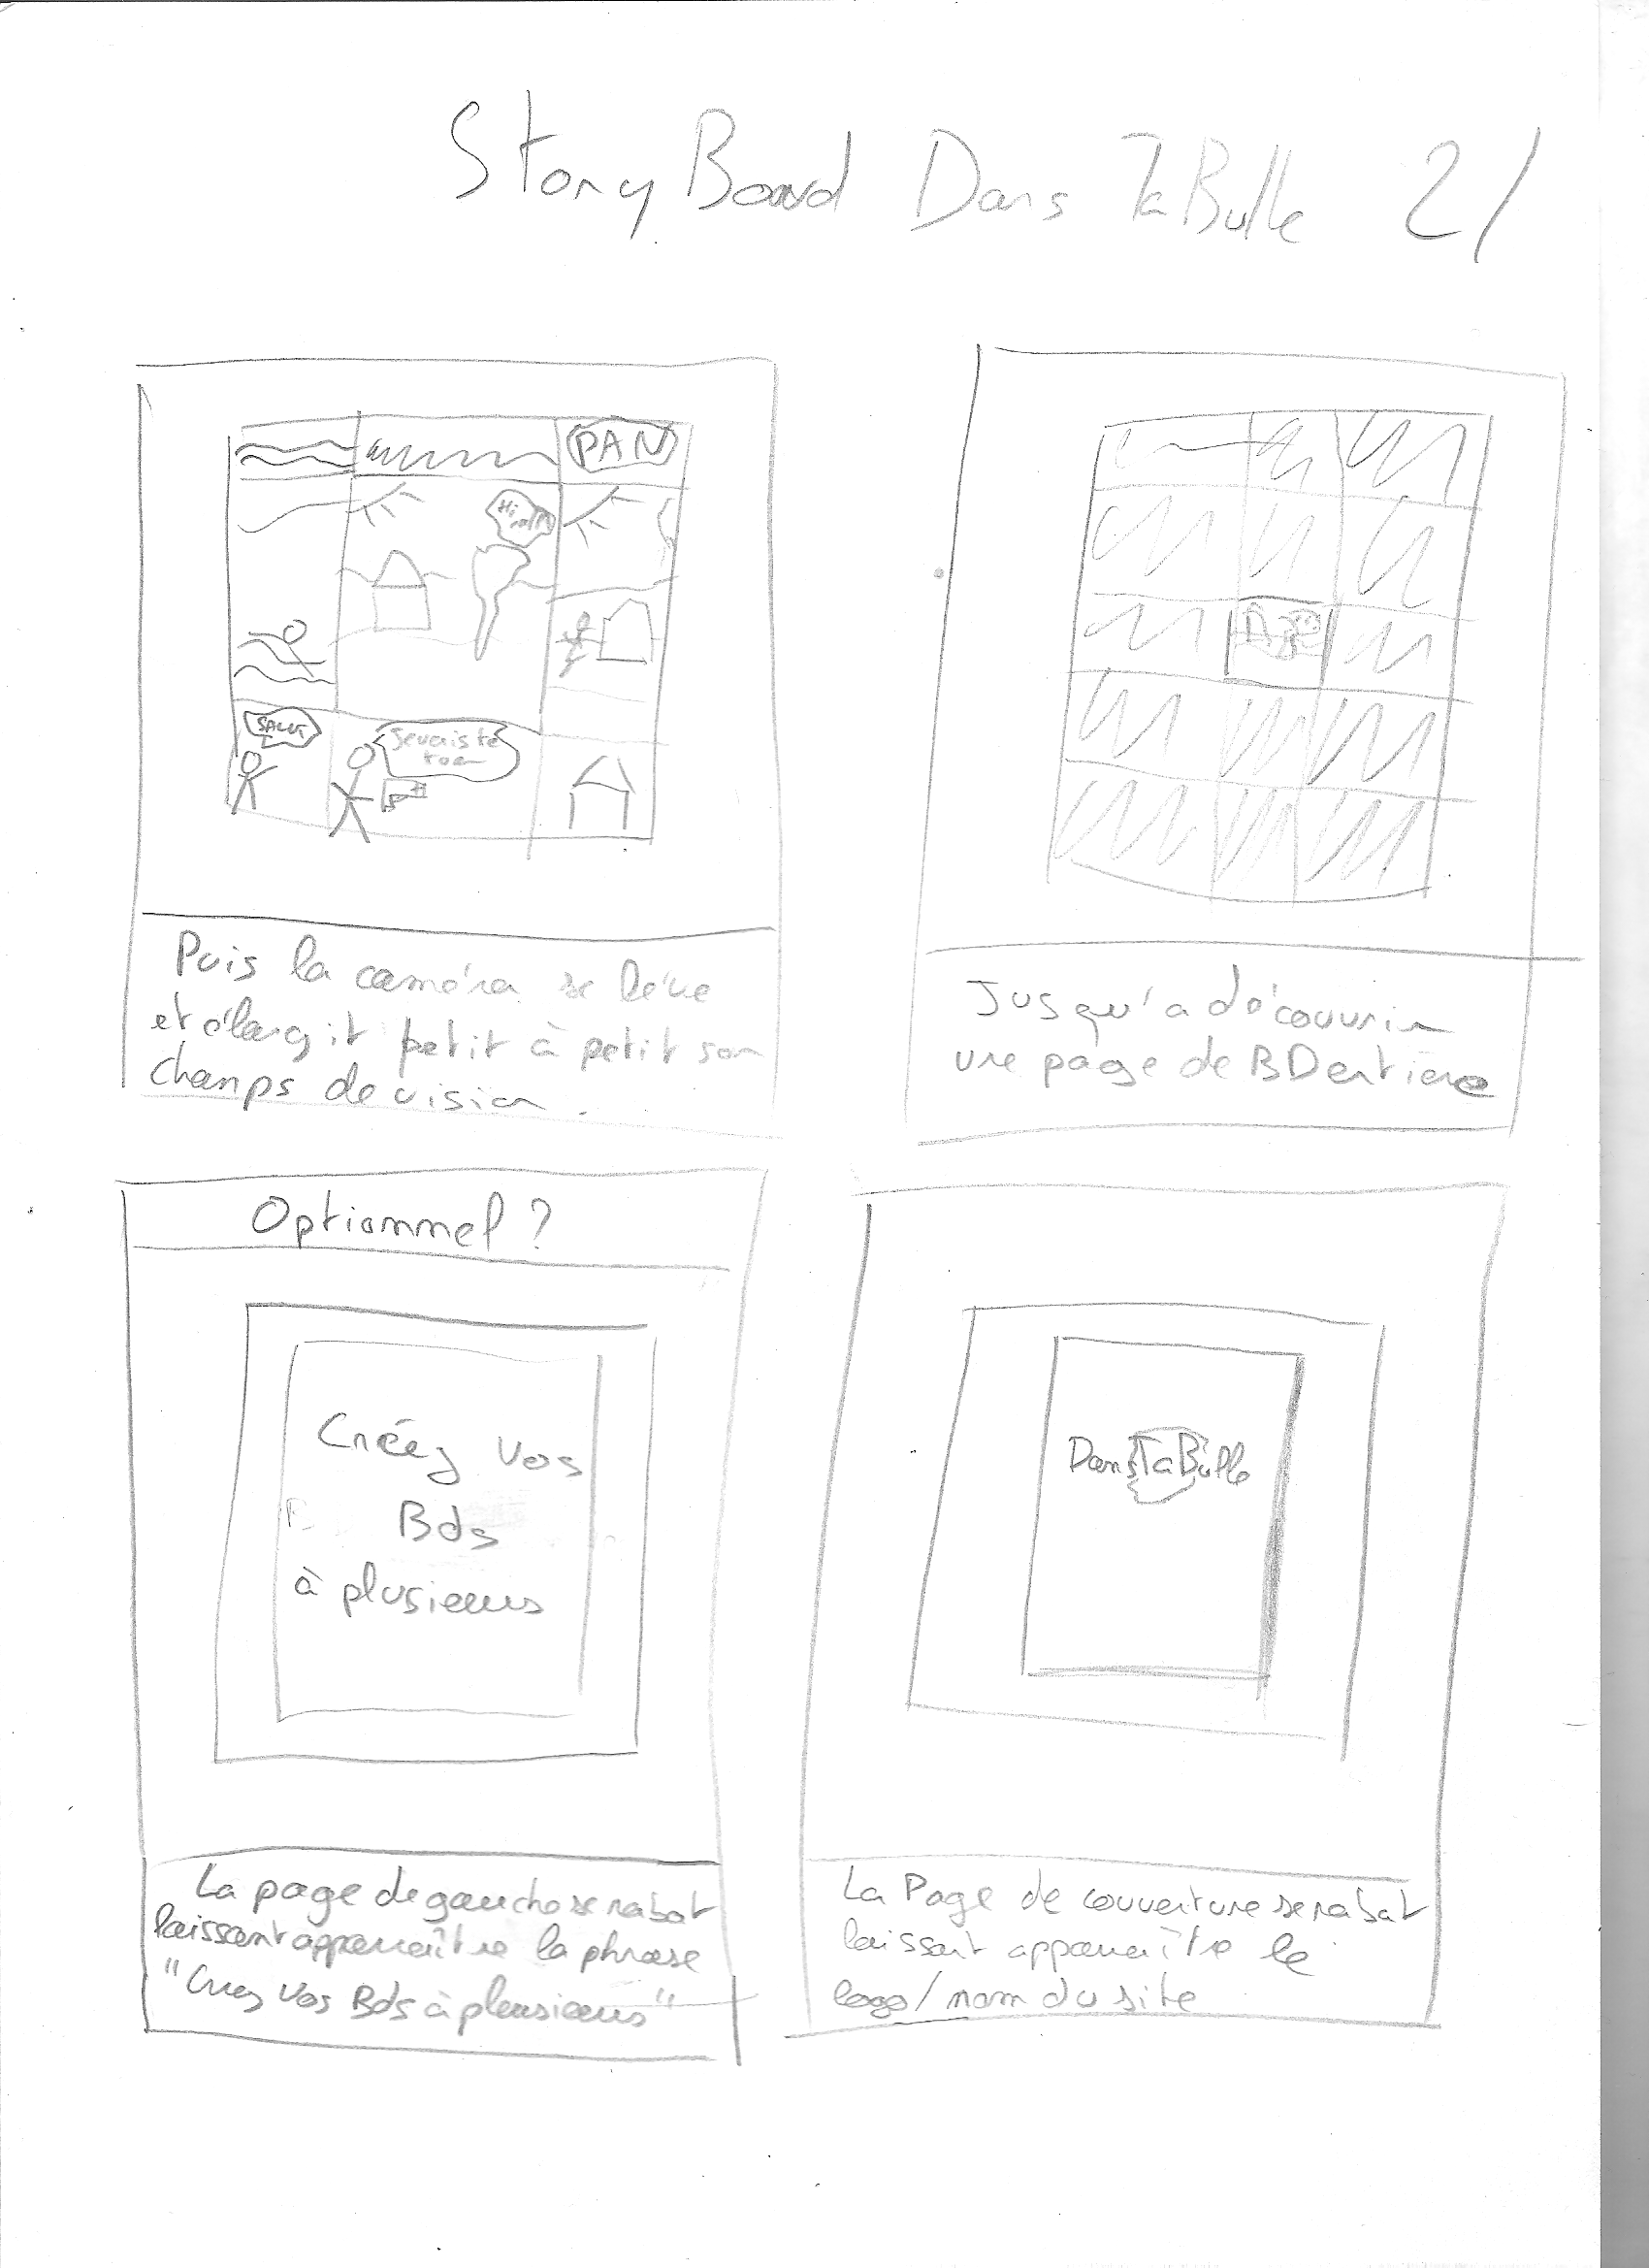 Story Board Dans TaBulle 2/
PAN
SALUT
Je vais te
tuer
Puis la caméra se lève
et élargit petit à petit son
champs de vision.
Jusqu'a découvrir
une page de BD entière
Optionnel ?
Créez vos
Bds
à plusieurs
DansTaBulle
La page de gauche se rabat
laissant apparaître la phrase
"Créez vos Bds à plusieurs"
La Page de couverture se rabat
laissant apparaître le
logo/nom du site